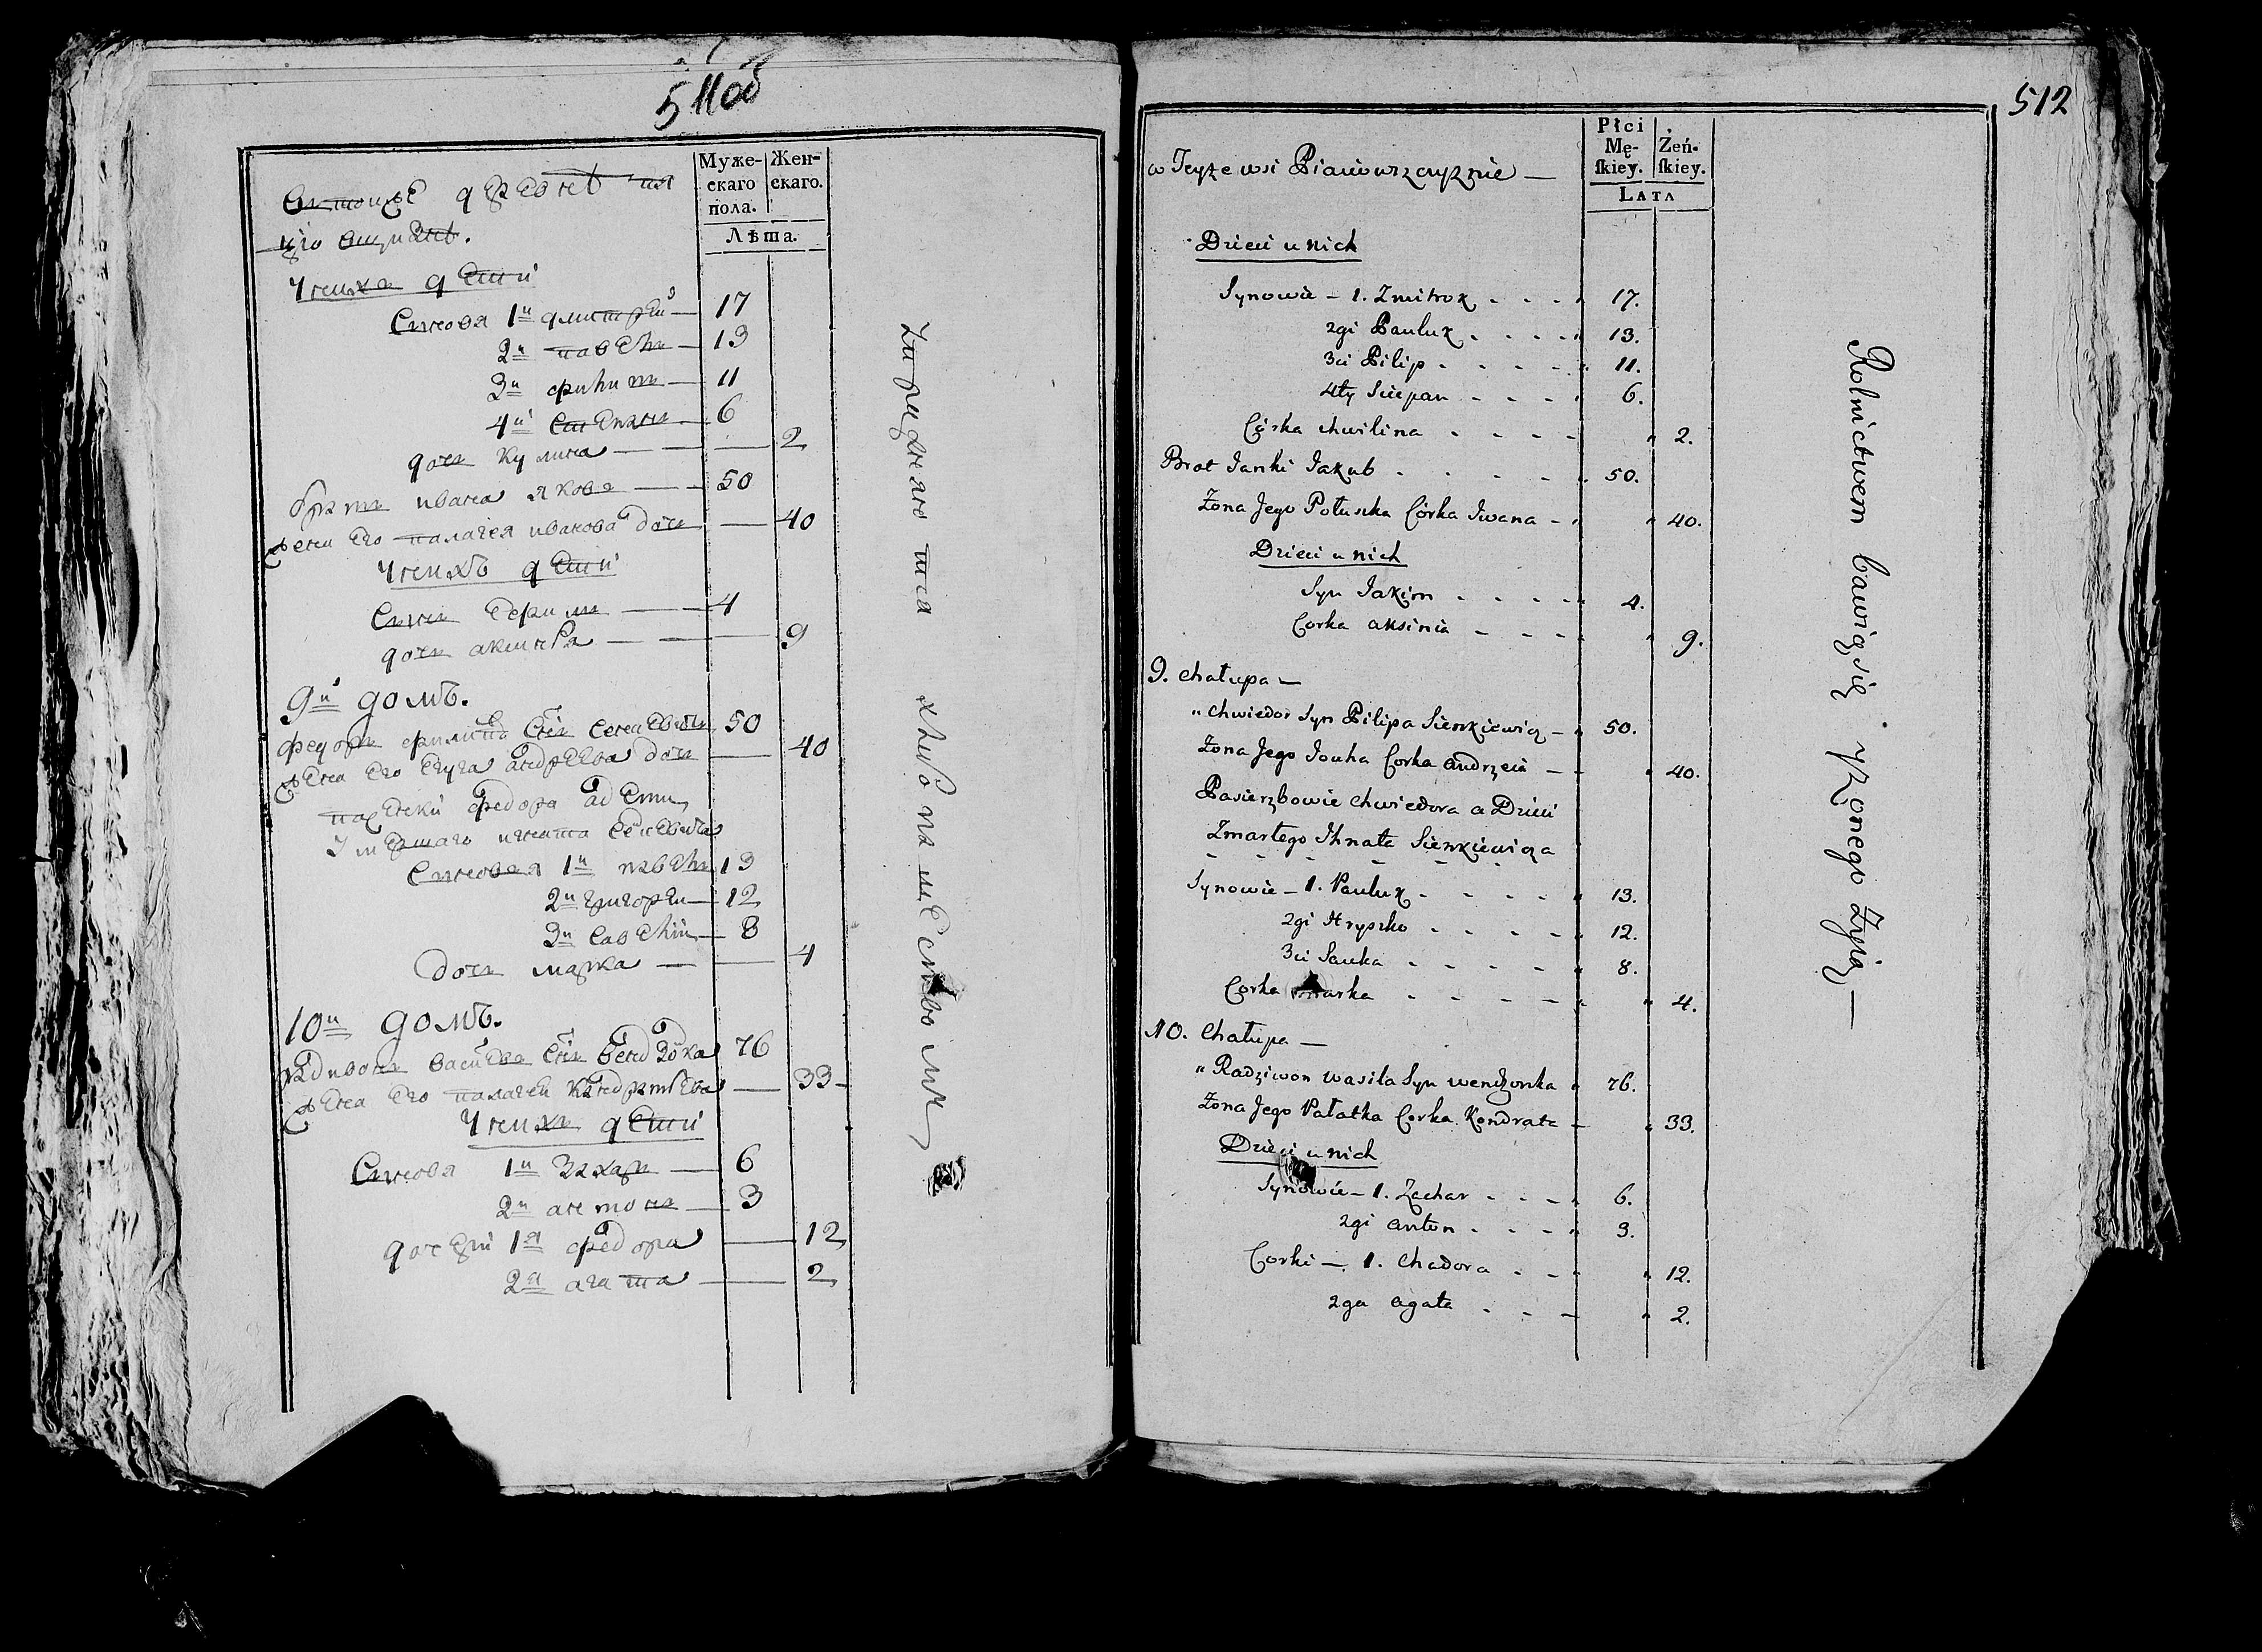 511об
Муже-
скаго
пола.
Жен-
скаго.
Лѣта.
въ тойже деревнѣ
Унихъ детей
Сыновя 1й дмитрей 17
2й павелъ 13
3й филипъ 11
4й степанъ 6
дочь кулина 2
братъ ивана яковъ 50
жена его палагея иванова дочь 40
Унихъ детей
Сынъ ефимъ 4
дочь аксинья 9
9й домъ.
федоръ филипа снъ сенкевичъ 50
жена его андреева дочь 40
федора а дети
умершаго игната сенкевича
Сыновья 1й павелъ 13
2й григорей 12
3й савелий 8
дочь марка 4
10й домъ.
радивонъ васильевъ снъ 76
жена его палагея кандратьева 33
Унихъ детей
Сыновя 1й захаръ 6
2й антонъ 3
дочери 1я федора 12
2я агата 2
хлебопашествомъ
512
Płci
Mę-
ſkiey.
Żeń-
ſkiey.
Lata
w Teyże wsi
Dzieci u nich
Synowie – 1. Zmitrok 17.
2gi Pauluk 13.
3ci Pilip 11.
4ty Sciepan 6.
Córka chwilina 2.
Brat Janki Jakub 50.
Żona Jego Połuszka Córka Jwana 40.
Dzieci u nich
Syn Jakim 4.
Corka aksinia 9.
9. chałupa —
" chwiedor Syn Pilipa Sienkiewicz 50.
Żona Jego Jouha Corka andrzeia 40.
Pasierzbowie chwiedora a Dzieci
Zmarłego Jhnata Sienkiewicza
Synowie – 1. Pauluk 13.
2gi Hryszko 12.
3ci Sauka 8.
Corka marka 4.
10. chałupa —
" Radziwon wasila Syn wendzonka 76.
Żona Jego Pałatka Corka Kondrata 33.
Dzieci u nich
Synowie – 1. Zachar 6.
2gi anton 3.
Corki — 1. Chadora 12.
2ga agata 2.
Rolnictwem bawią się. y Zonego Żyią —